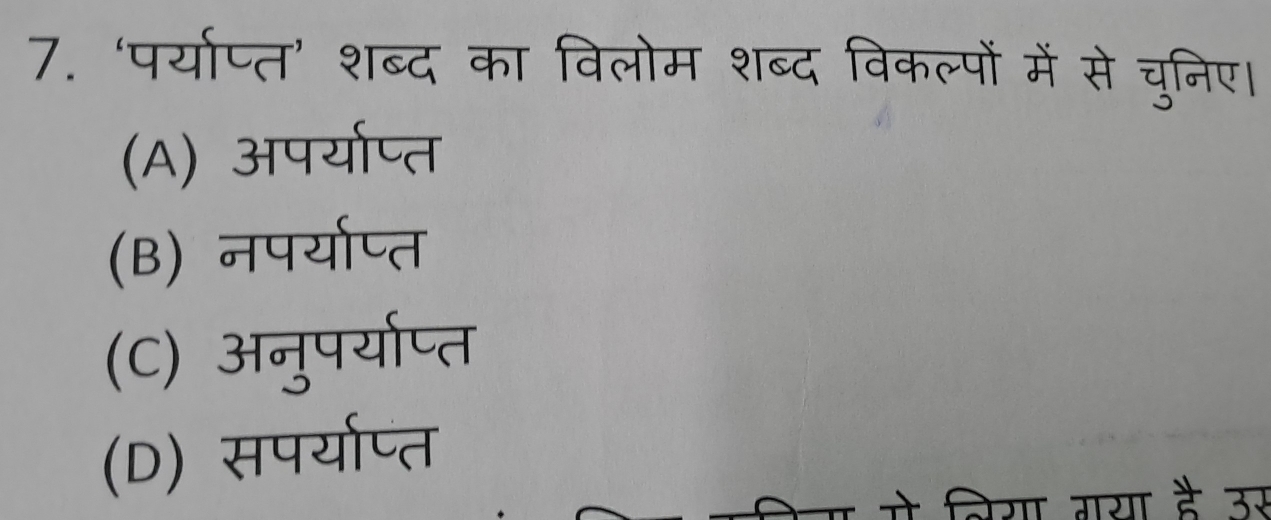 7. ‘पर्याप्त’ शब्द का विलोम शब्द विकल्पों में से चुनिए।
(A) अपर्याप्त
(B) नपर्याप्त
(C) अनुपर्याप्त
(D) सपर्याप्त
गया है उस